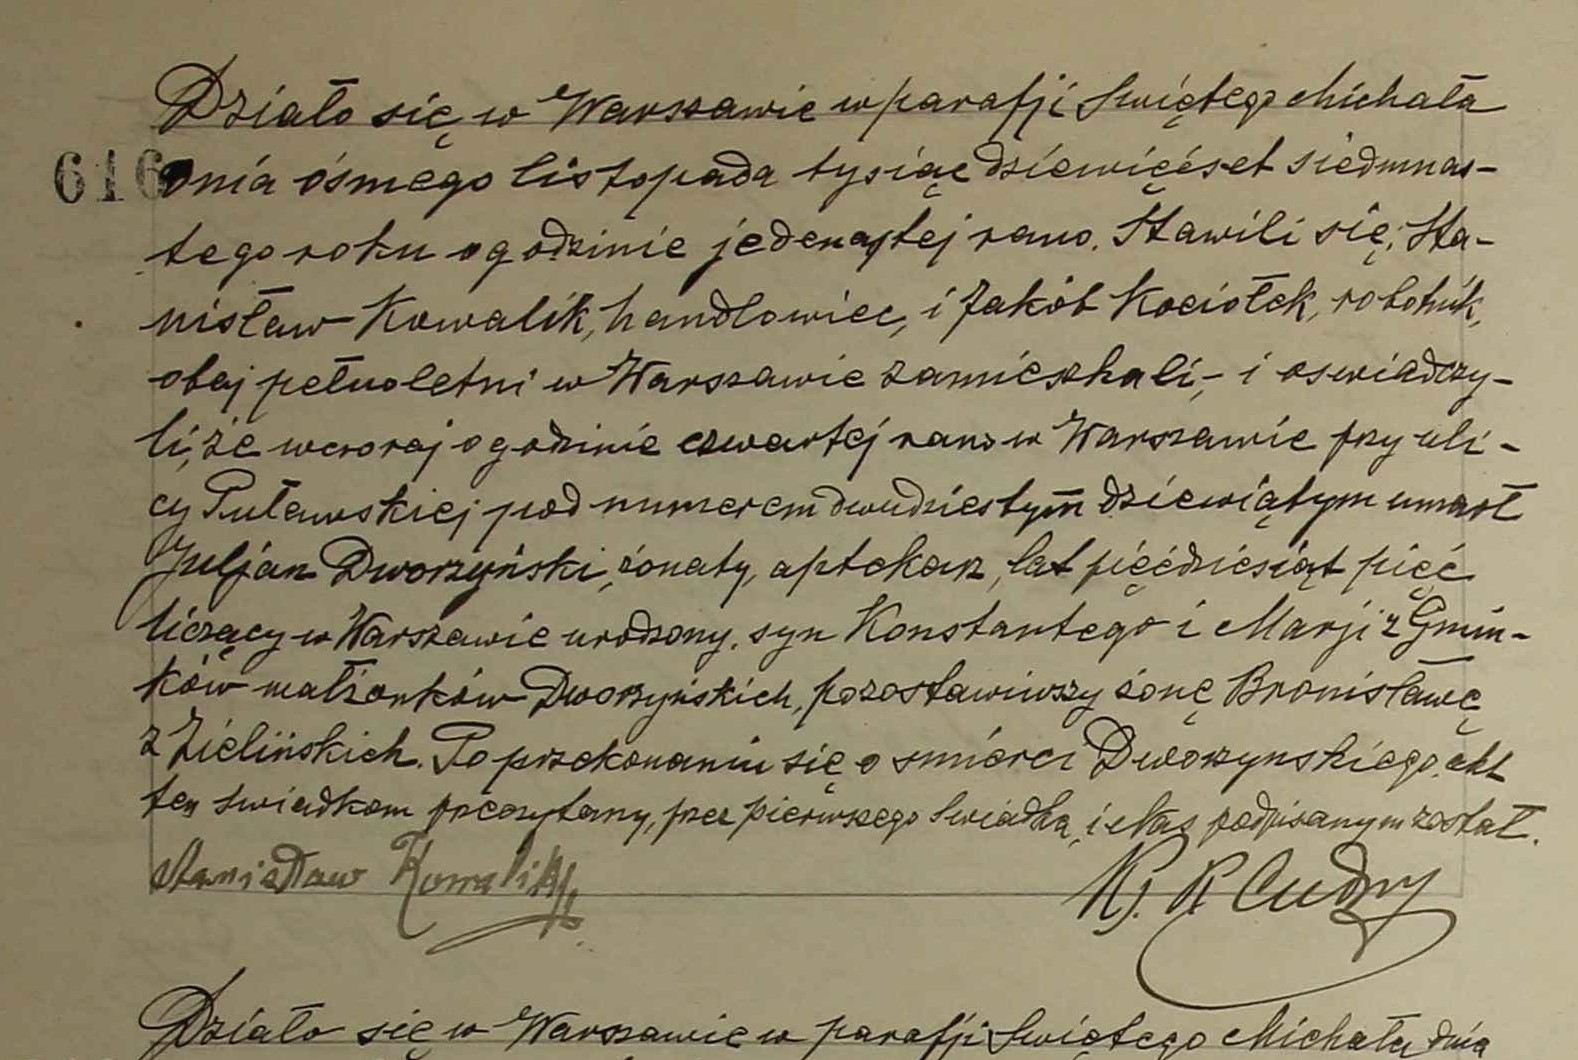 Działo się w Warszawie w parafji Świętego Michała
616 dnia ósmego listopada tysiąc dziewięćset siedmnas-
tego roku o godzinie jedenastej rano. Stawili się; Sta-
nisław Kowalik, handlowiec, i Jakób Kociołek, robotnik,
obaj pełnoletni w Warszawie zamieszkali,- i oswiadczy-
li, że wczoraj o godzinie czwartej rano w Warszawie przy uli-
cy Puławskiej pod numerem dwudziestym dziewiątym umarł
Juljan Dworzyński, żonaty, aptekarz, lat pięćdziesiąt pięć
liczący w Warszawie urodzony, syn Konstantego i Marji z Gmin-
ków małżonków Dworzyńskich, pozostawiwszy żonę Bronisławę
z Zielińskich. Po przekonaniu się o śmierci Dworzynskiego, akt
ten świadkom przeczytany, przez pierwszego świadka, i Nas podpisanym został.
Stanisław Kowalik
Ks. R Cudny
Działo się w Warszawie w parafji Świętego Michała dnia